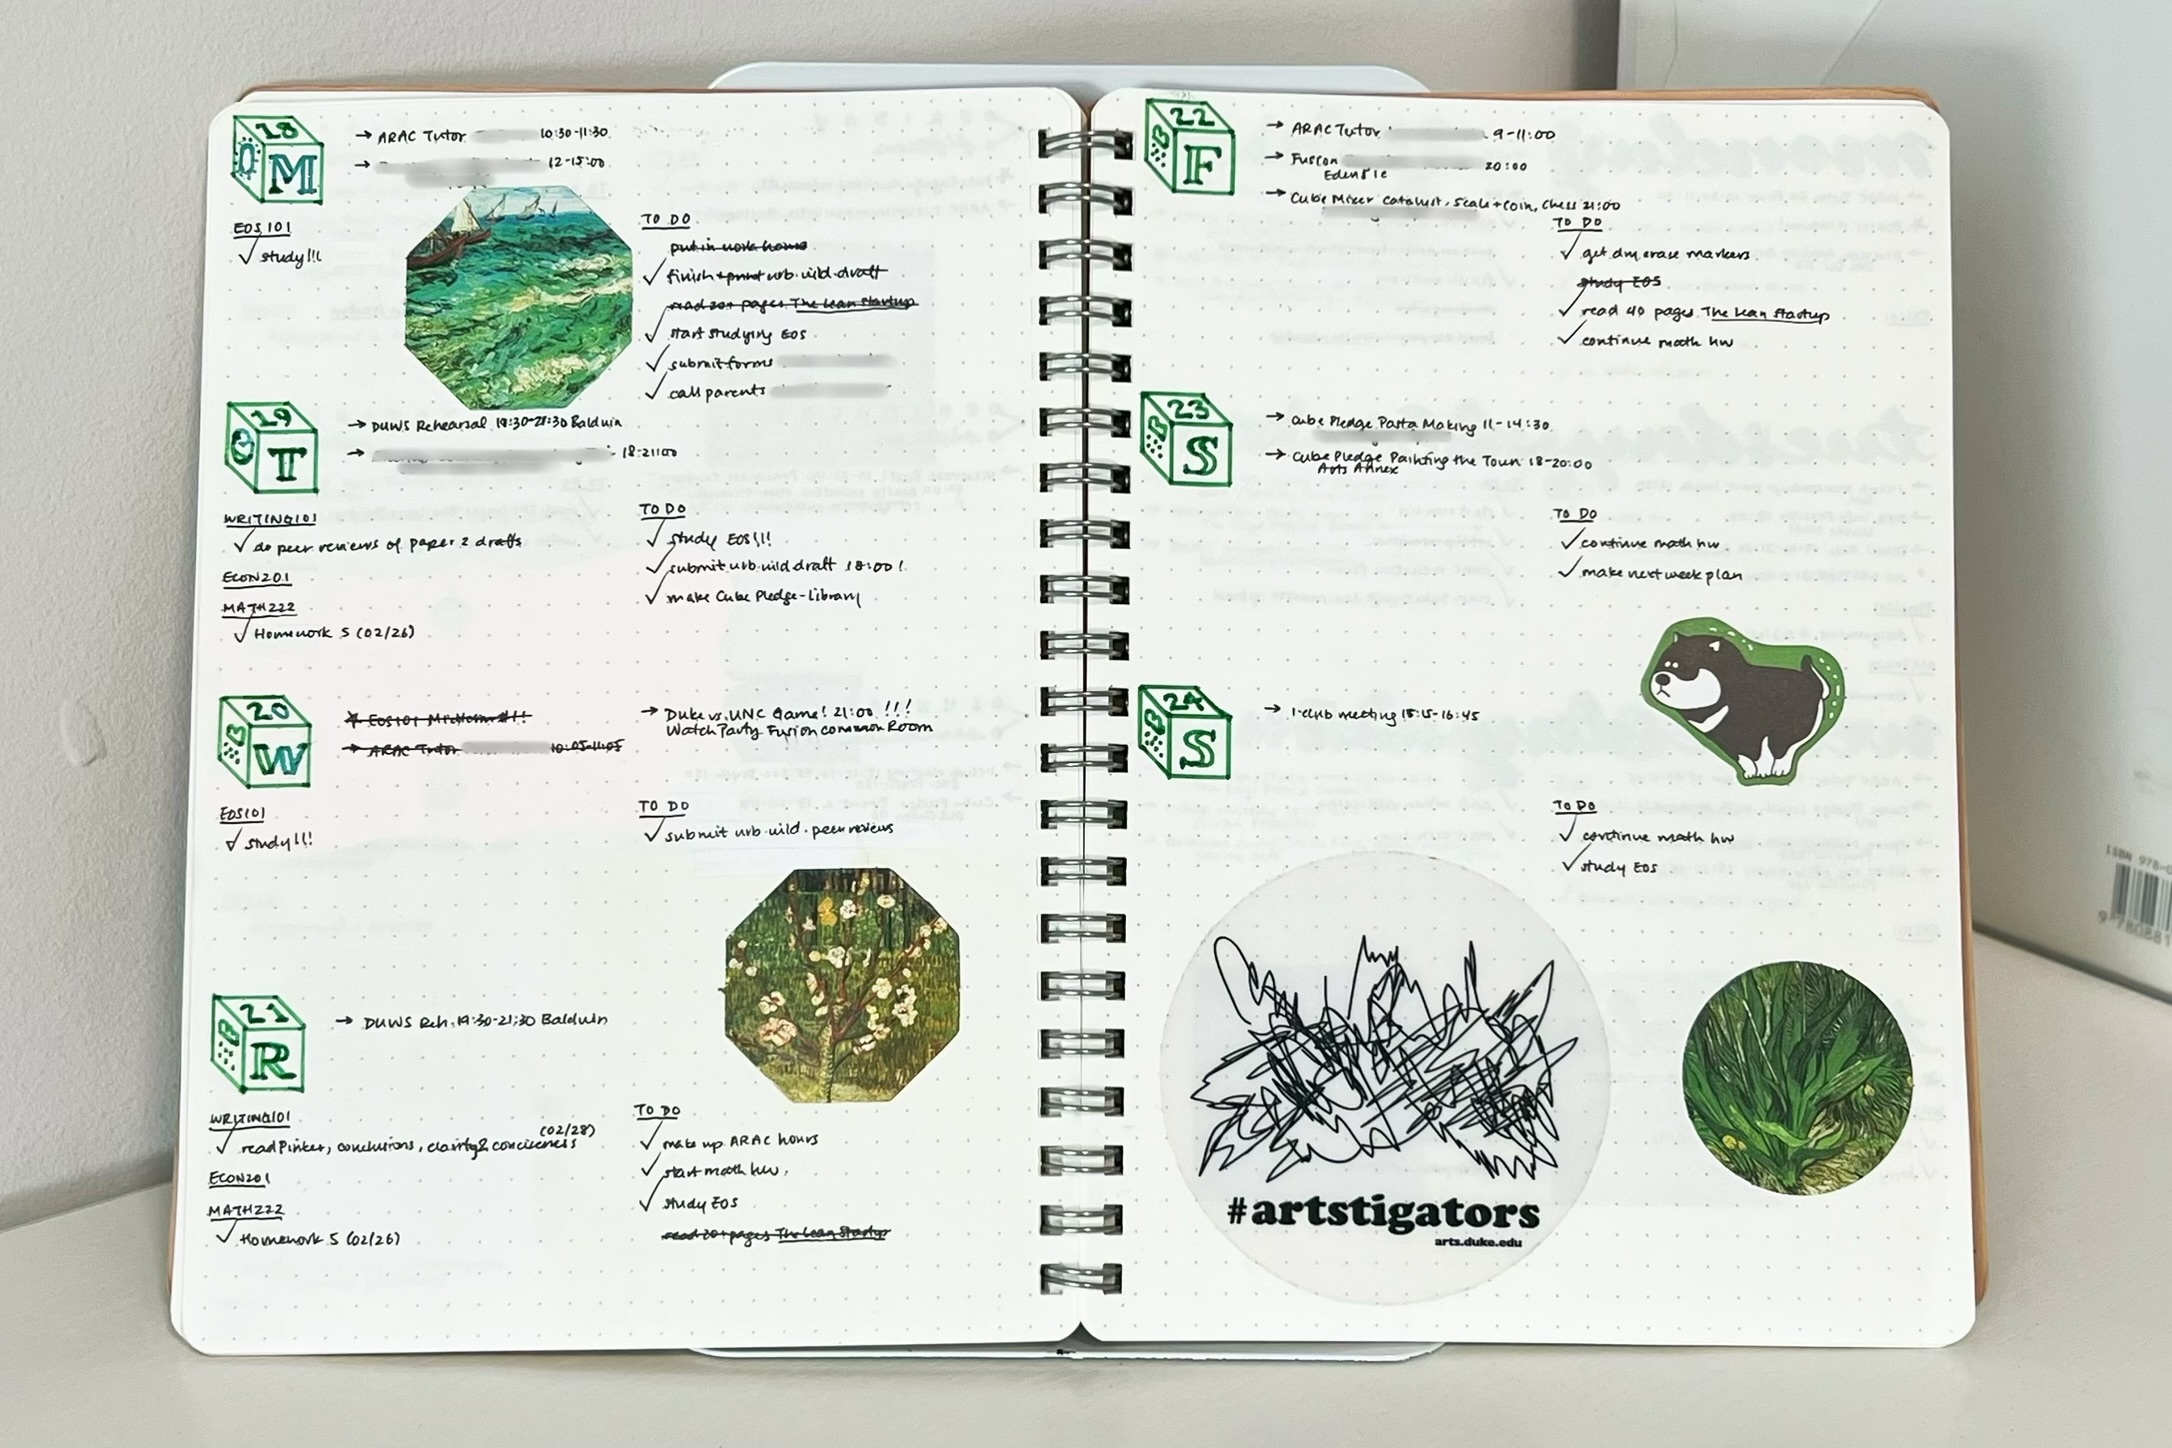 18
M
→ ARAC Tutor 10:30-11:30
→ 12-15:00
EOS 101
✓ study!!!
TO DO
put in work hours
✓ finish + print urb. wild. draft
read 20+ pages The Lean Startup
✓ start studying EOS
✓ submit forms
✓ call parents
19
T
→ DUWS Rehearsal 19:30-21:30 Baldwin
→ 18-21:00
WRITING101
✓ do peer reviews of paper 2 drafts
ECON201
MATH222
✓ Homework 5 (02/26)
TO DO
✓ study EOS!!!
✓ submit urb. wild draft 18:00!
✓ make Cube Pledge-Library
20
W
EOS101 Midterm #1!!
→ ARAC Tutor 10:05-11:05
→ Duke vs. UNC Game! 21:00 !!!
Watch Party Fusion Common Room
EOS101
✓ study!!!
TO DO
✓ submit urb. wild. peer reviews
21
R
→ DUWS Reh. 19:30-21:30 Baldwin
WRITING101
(02/28)
✓ read Pinker, conclusions, clarity & conciseness
ECON201
MATH222
✓ Homework 5 (02/26)
TO DO
✓ make up ARAC hours
✓ start math hw.
✓ study EOS
read 20+ pages The Lean Startup
22
F
→ ARAC Tutor 9-11:00
→ Fusion 20:00
Edens 1C
→ Cube Mixer Catalyst, Scale + Coin, Chess 21:00
TO DO
✓ get dry erase markers
study EOS
✓ read 40 pages The Lean Startup
✓ continue math hw
23
S
→ Cube Pledge Pasta Making 11-14:30
→ Cube Pledge Painting the Town 18-20:00
Arts Annex
TO DO
✓ continue math hw
✓ make next week plan
24
S
→ I-club meeting 15:15-16:45
TO DO
✓ continue math hw
✓ study EOS
#artstigators
arts.duke.edu
ISBN 978-0